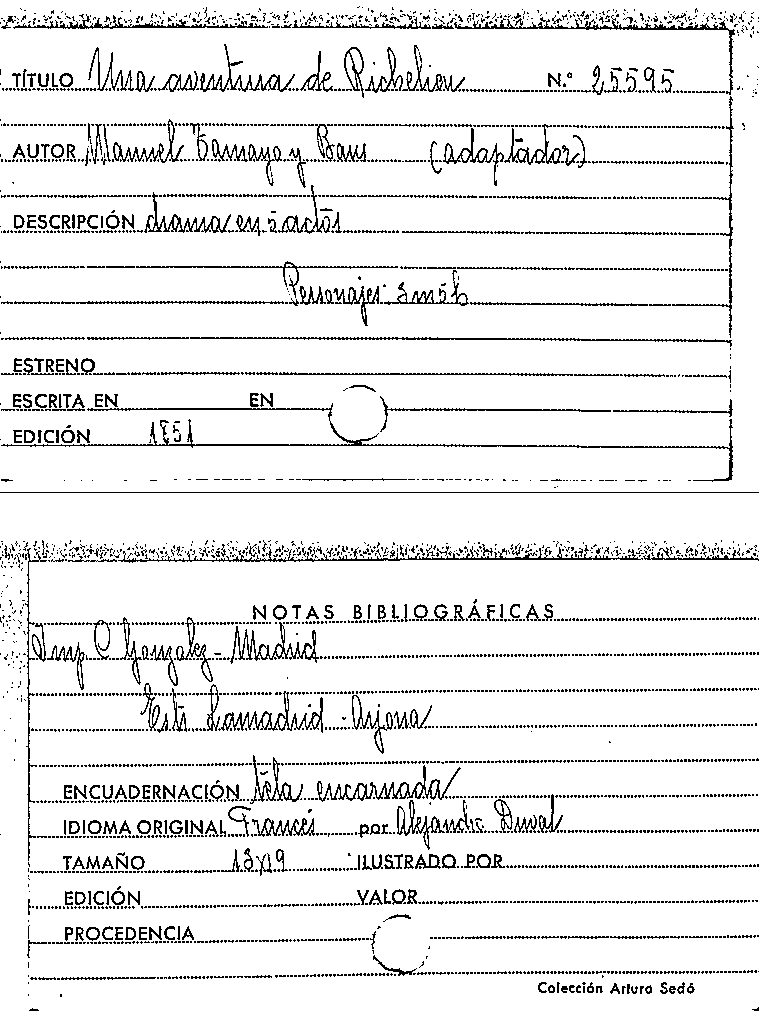 TÍTULO Una aventura de Richelieu N.° 25595
AUTOR Manuel Tamayo y Baus (adaptador)
DESCRIPCIÓN drama en 5 actos
Personajes: 3m5h
ESTRENO
ESCRITA EN EN
EDICIÓN 1851
NOTAS BIBLIOGRÁFICAS
Imp C Gonzalez - Madrid
Lamadrid - Arjona
ENCUADERNACIÓN tela encarnada
IDIOMA ORIGINAL Francés por Alejandro Duval
TAMAÑO 13x19 ILUSTRADO POR
EDICIÓN VALOR
PROCEDENCIA
Colección Arturo Sedó